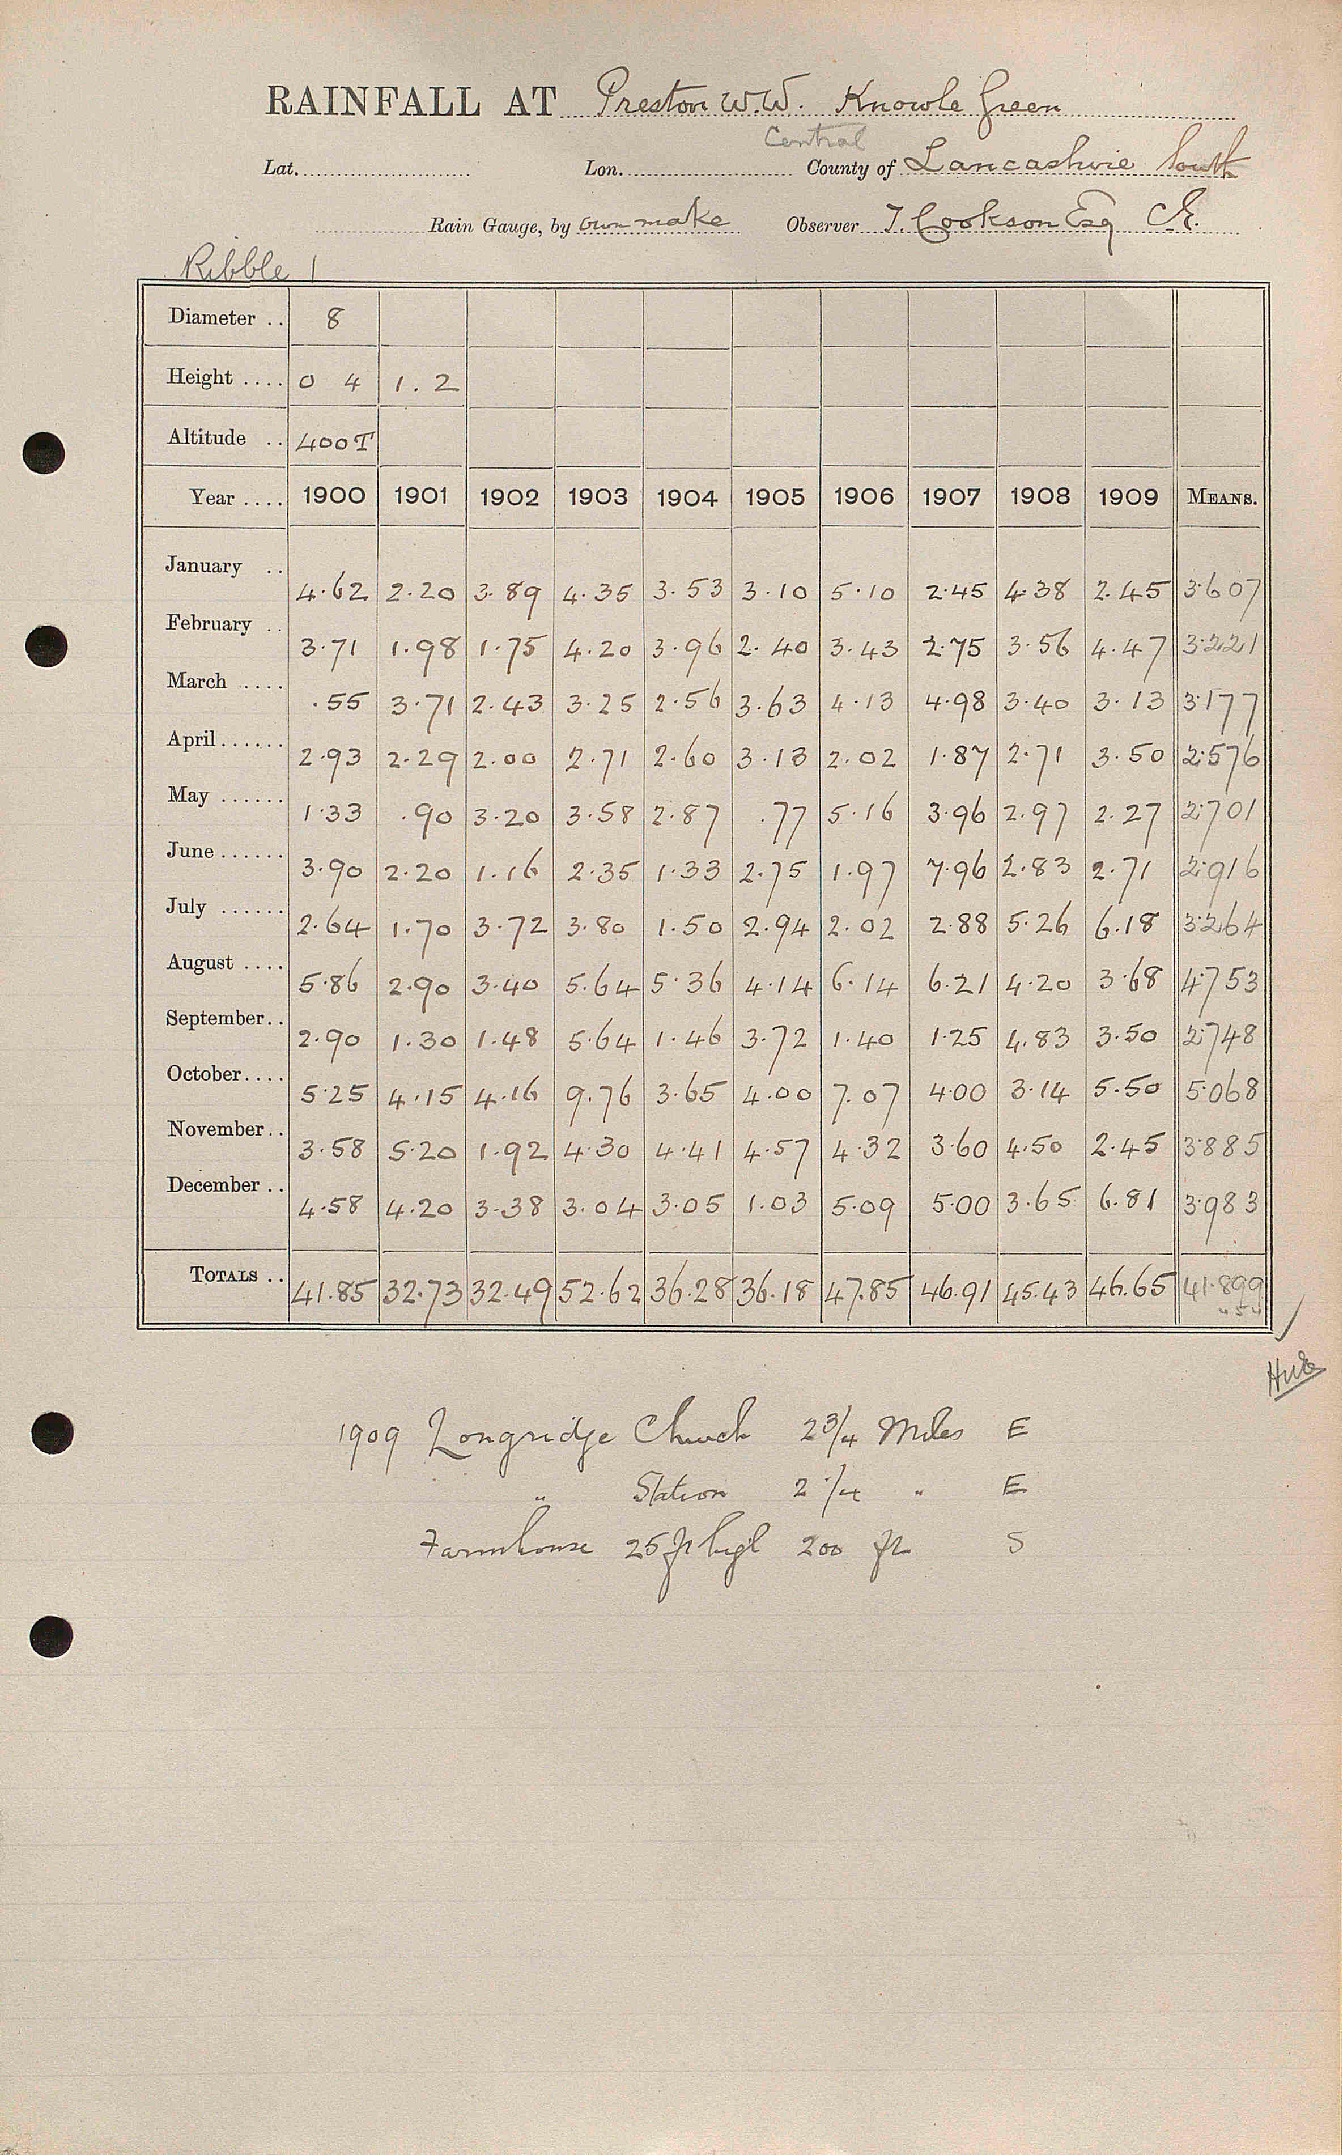 RAINFALL AT Preston W.W. Knowle Green
Central
Lat. Lon. County of Lancashire South
Rain Gauge, by own make Observer T. Cookson Esq C.E.
Ribble 1
Diameter .. 8
Height .... 0 4 1.2
Altitude .. 400T
Year .... 1900 1901 1902 1903 1904 1905 1906 1907 1908 1909 MEANS.
January .. 4.62 2.20 3.89 4.35 3.53 3.10 5.10 2.45 4.38 2.45 3.607
February .. 3.71 1.98 1.75 4.20 3.96 2.40 3.43 2.75 3.56 4.47 3.221
March .... .55 3.71 2.43 3.25 2.56 3.63 4.13 4.98 3.40 3.13 3.177
April...... 2.93 2.29 2.00 2.71 2.60 3.13 2.02 1.87 2.71 3.50 2.576
May ...... 1.33 .90 3.20 3.58 2.87 .77 5.16 3.96 2.97 2.27 2.701
June...... 3.90 2.20 1.16 2.35 1.33 2.75 1.97 7.96 2.83 2.71 2.916
July ...... 2.64 1.70 3.72 3.80 1.50 2.94 2.02 2.88 5.26 6.18 3.264
August .... 5.86 2.90 3.40 5.64 5.36 4.14 6.14 6.21 4.20 3.68 4.753
September.. 2.90 1.30 1.48 5.64 1.46 3.72 1.40 1.25 4.83 3.50 2.748
October.... 5.25 4.15 4.16 9.76 3.65 4.00 7.07 4.00 3.14 5.50 5.068
November.. 3.58 5.20 1.92 4.30 4.41 4.57 4.32 3.60 4.50 2.45 3.885
December .. 4.58 4.20 3.38 3.04 3.05 1.03 5.09 5.00 3.65 6.81 3.983
TOTALS .. 41.85 32.73 32.49 52.62 36.28 36.18 47.85 46.91 45.43 46.65 41.899
1909 Longridge Church 2 3/4 Miles E
" Station 2 1/4 " E
Farmhouse 25 ft high 200 ft S